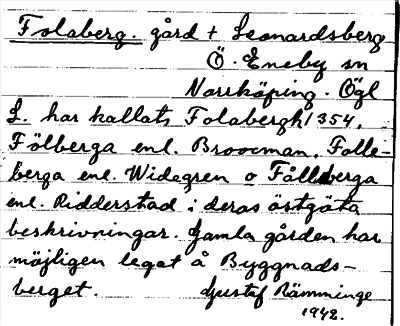 Folaberg. gård t Leonardsberg
Ö. Eneby sn
Norrköping. Ögl
L. har kallats Folabergh 1354,
Fölberga enl. Broocman. Folle-
berga enl. Widegren o Fållberga
enl. Ridderstad i deras östgöta
beskrivningar. Gamla gården har
möjligen legat å Byggnads-
berget. Gustaf Rämminge
1942.